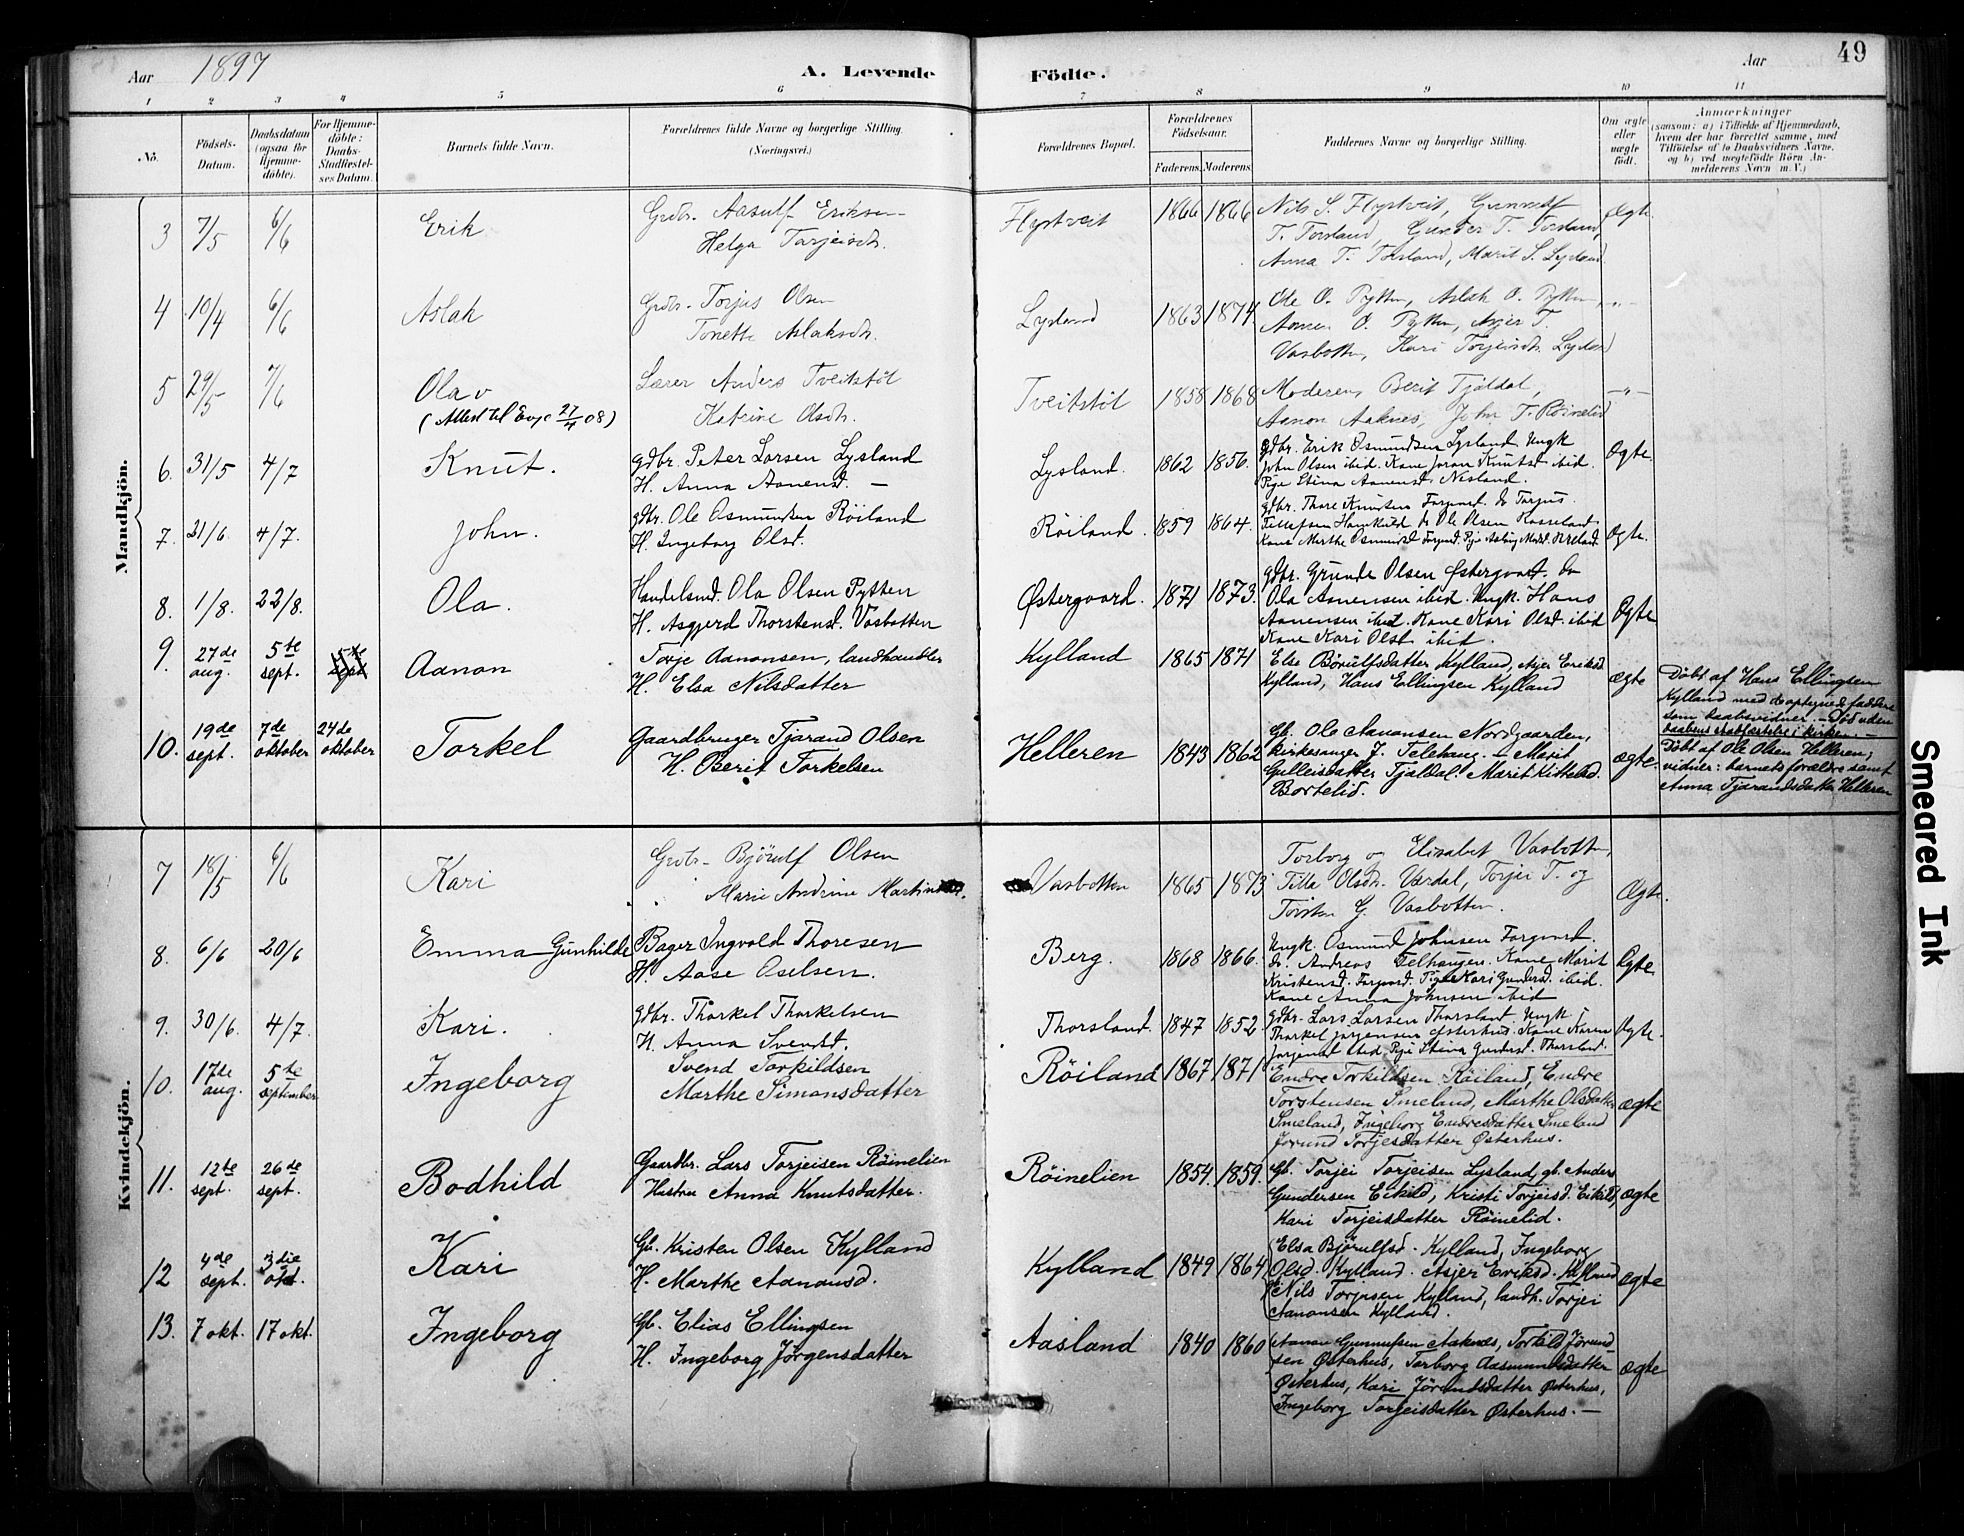 49
Aar 1897
A. Levende
Födte.
Aar
1 2 3 4 5 6 7 8 9 10 11
No.
Födsels-Datum.
Daabsdatum (ogsaa for Hjemme-döbte).
For Hjemme-döbte: Daabs-Stadfæstel-ses Datum.
Barnets fulde Navn.
Forældrenes fulde Navne og borgerlige Stilling. (Næringsvei.)
Forældrenes Bopæl.
Forældrenes Födselsaar.
Faderens. Moderens.
Faddernes Navne og borgerlige Stilling.
Om ægte eller uægte födt.
Anmærkninger
(saasom: a) i Tilfælde af Hjemmedaab,
hvem der har forrettet samme, med
Tilföielse af to Daabsvidners Navne,
og b) ved uægtefödte Börn An-
melderens Navn m. V.)
Mandkjön.
3 7/5 6/6 Erik
Grdbr. Aasulf Eriksen
Helga Tarjeisdtr.
Flystveit 1866 1866
Nils S. Flystveit, Gunnulf
T. Torsland, Gunder T. Torsland,
Anna T. Torsland, Marit S. Lysland
Ægte.
4 10/4 6/6 Aslak
Grdbr. Torjus Olsen
Tonette Aslaksdtr.
Lysland 1863 1874
Ole O. Pytten, Aslak O. Pytten,
O. Pytten, Asjer T.
Vasbotten, Kari Torjeisdtr. Lysland
-"-
5 29/5 7/6 Olav
(Attest til Evje 27/4 08)
Lærer Anders Tveitstöl
Katrine Olsdtr.
Tveitstöl 1858 1868
Moderen, Berit Tjaldal,
Aanon Aaknes, John T. Röinelid
-"-
6. 31/5 4/7 Knut.
gdbr. Peter Larsen Lysland
H. Anna Aanensd. —
Lysland. 1862 1856.
gdbr. Erik Osmundsen Lysland Ungk
John Olsen ibid. Kone Joran Knutsd. ibid.
Pige Stina Aanensd. Nesland.
Ægte.
7. 21/6. 4/7. John.
gdbr. Ole Osmundsen Röiland
H. Ingeborg Olsd.
Röiland. 1859 1864.
gdbr. Thore Knutsen Forgaard. do Torjus
Tellefsen do Ole Olsen Rosseland
Kone Marthe Osmundsd Pige
Ægte.
8. 1/8. 22/8. Ola.
Handelsmd. Ola Olsen Pytten
H. Asgjerd Thorstensd. Vasbotten
Østergaard. 1871 1873.
gdbr. Grunde Olsen Østergaard. do
Ola Aanensen ibid. Ungk. Hans
Aanensen ibid. Kone Kari Olsd. ibid
Kone Kari Olsd ibid.
Ægte
9. 27de aug. 5te sept. Aanon
Torje Aanonsen, landhandler
H. Elsa Nilsdatter
Kylland 1865 1871
Else Börulfsdatter Kylland, Asjer Eriksd
Kylland, Hans Ellingsen Kylland
ægte
Döbt af Hans Ellingsen
Kylland med de optegnede faddere
som daabsvidner. — Död uden
daabens stadfæstelse i kirken. —
10. 19de sept. 7de oktober 24de oktober Torkel
Gaardbruger Tjarand Olsen
H. Berit Torkelsen
Helleren 1843 1862
Gb. Ole Aanonsen Nordgaarden,
kirkesanger J. Telehaug. — Marit
Gulleisdatter Tjaldal. Marit Kittelsd.
Bortelid.
ægte.
Döbt af Ole Olsen Helleren;
vidner: barnets forældre samt
Anna Tjarandsdatter Helleren
Kvindekjön.
7 18/5 6/6 Kari
Grdbr. Björulf Olsen
Marie Andrine
Vasbotten 1865 1873
Torborg og Elisabet Vasbotten,
Tilla Olsdtr. Vardal, Torjei T. og
Torsten G. Vasbotten.
Ægte.
8. 6/6 20/6 Emma Gunhilde
Bager Ingvold Thoresen
H. Aase Oselsen.
Berg. 1868 1866.
Ungk. Osmund Johnsen Forgaard.
do. Andreas Felhaugen. Kone Marit
Kristensd. Forgaard. Pige Kari Gundersd. ibid.
Kone Anna Johnsen ibid
Ægte
9. 30/6. 4/7. Kari.
gdbr. Thorkel Thorkelsen
H. Anna Svendsd.
Thorsland. 1847 1852.
gdbr. Lars Larsen Thorsland. Ungk
Thorkel Jörgensen Østerhus. Kone Karen
Jörgensd ibid. Pige Stina Gundersd. Thorsland.
Ægte.
10. 17de aug. 5te september Ingeborg
Svend Torkildsen
Marthe Simonsdatter
Röiland 1867 1871
Endre Torkildsen Röiland, Endre
Torstensen Smeland, Marthe Olsdatter
Smeland, Ingeborg Endresdatter Smeland
Jorund Torjesdatter Østerhus.
ægte
11. 12te sept. 26de sept. Bodhild
Gaardbr. Lars Torjeisen Röinelien
Hustru Anna Knutsdatter.
Röinelien 1854. 1859.
Gb. Torjei Torjeisen Lysland, gb. Anders
Gundersen Eikild, Kristi Torjeisd. Eikild,
Kari Torjeisdatter Röinelid.
ægte
12 4de sept. 3die okt. Kari
Gb. Kristen Olsen Kylland
H. Marthe Aanansd.
Kylland 1849 1864
Elsa Björulfsd. Kylland, Ingeborg
Olsd. Kylland. Asjer Eriksd. Kylland
Nils Torjusen Kylland, landh. Torjei
Aanonsen Kylland.
ægte
13. 7 okt. 17 okt. Ingeborg
Gb. Elias Ellingsen
H. Ingeborg Jörgensdatter
Aasland 1840 1860
Aanon Gunnufsen Aaknes, Torkild Jörund-
sen Østerhus, Torborg Aasmundsdatter
Østerhus, Kari Jörundsdatter Østerhus,
Ingeborg Torjeisdatter Østerhus. —
ægte
Smeared Ink